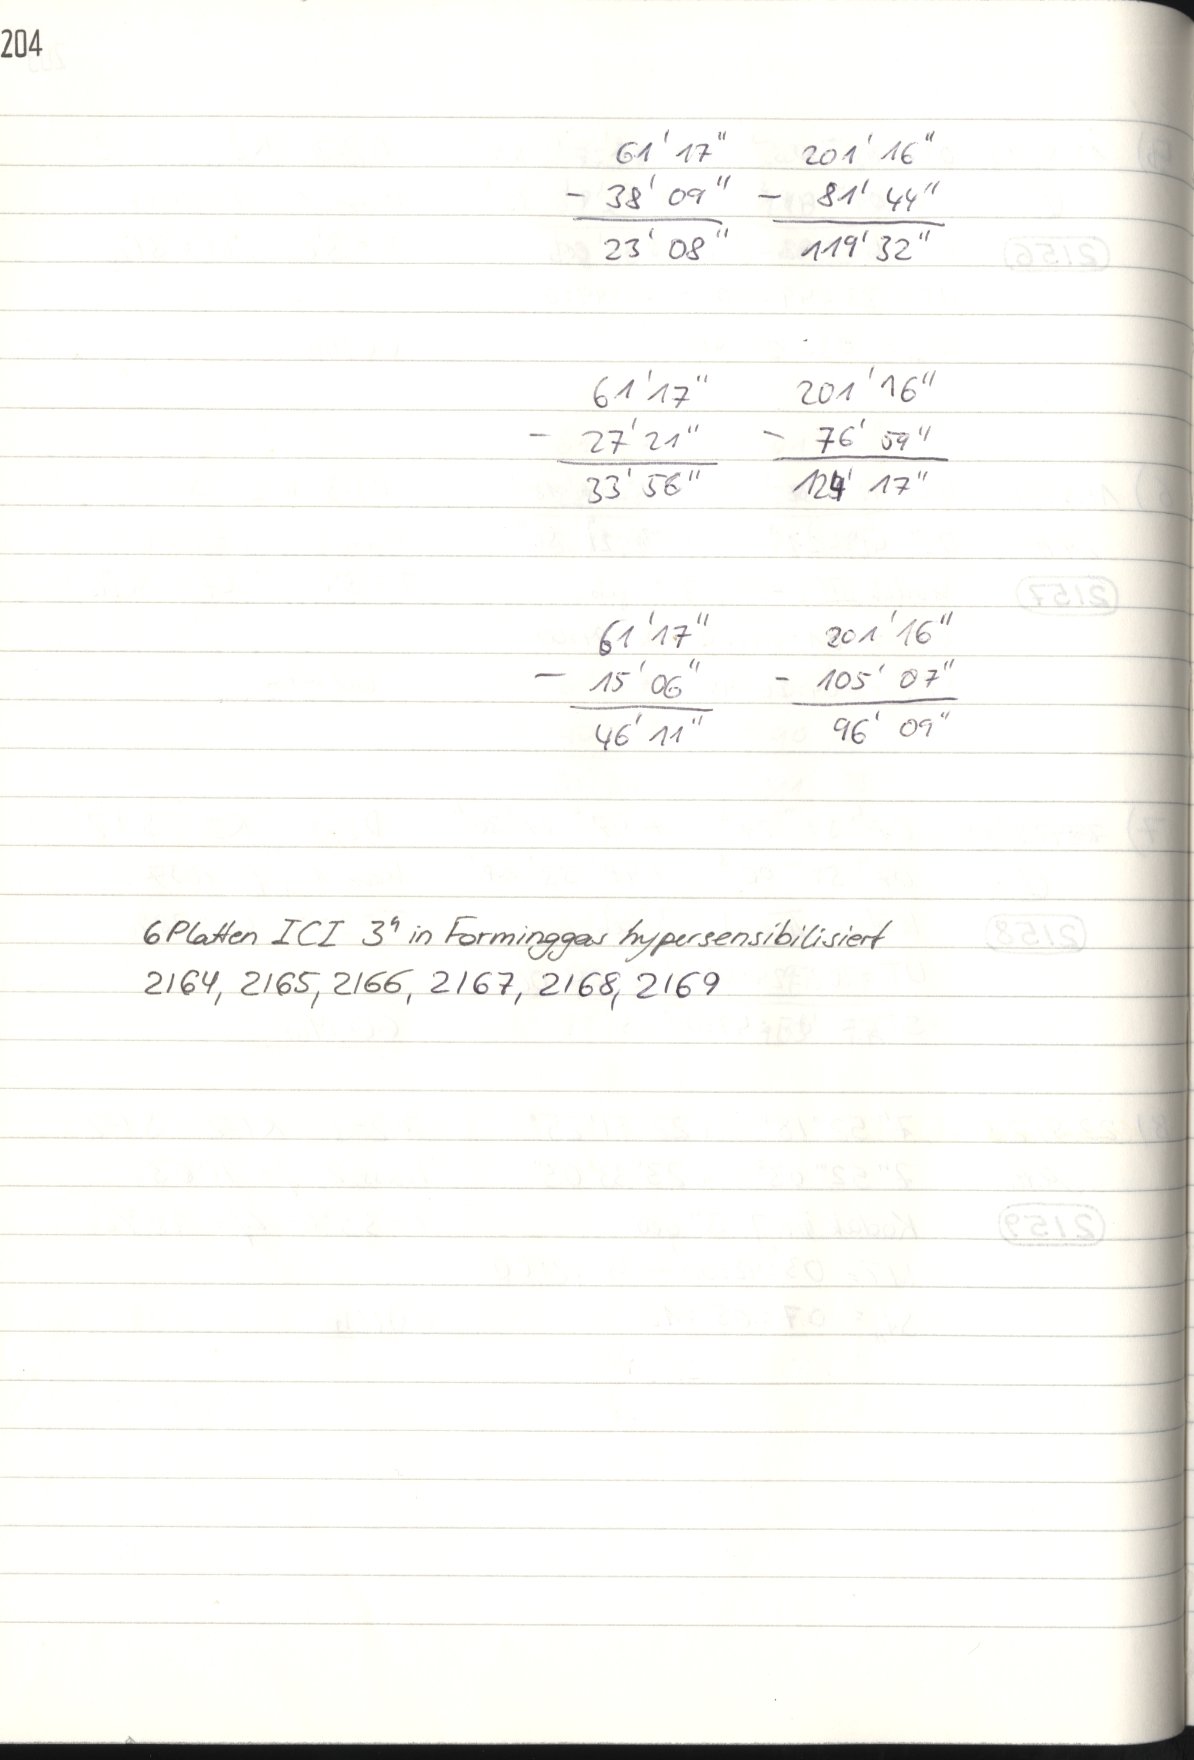 204
61' 17" 201' 16"
- 38' 09" - 81' 44"
23' 08" 119' 32"
61' 17" 201' 16"
- 27' 21" - 76' 59"
33' 56" 124' 17"
61' 17" 201' 16"
- 15' 06" - 105' 07"
46' 11" 96' 09"
6 Platten ICI 3ʰ in Forminggas hypersensibilisiert
2164, 2165, 2166, 2167, 2168, 2169